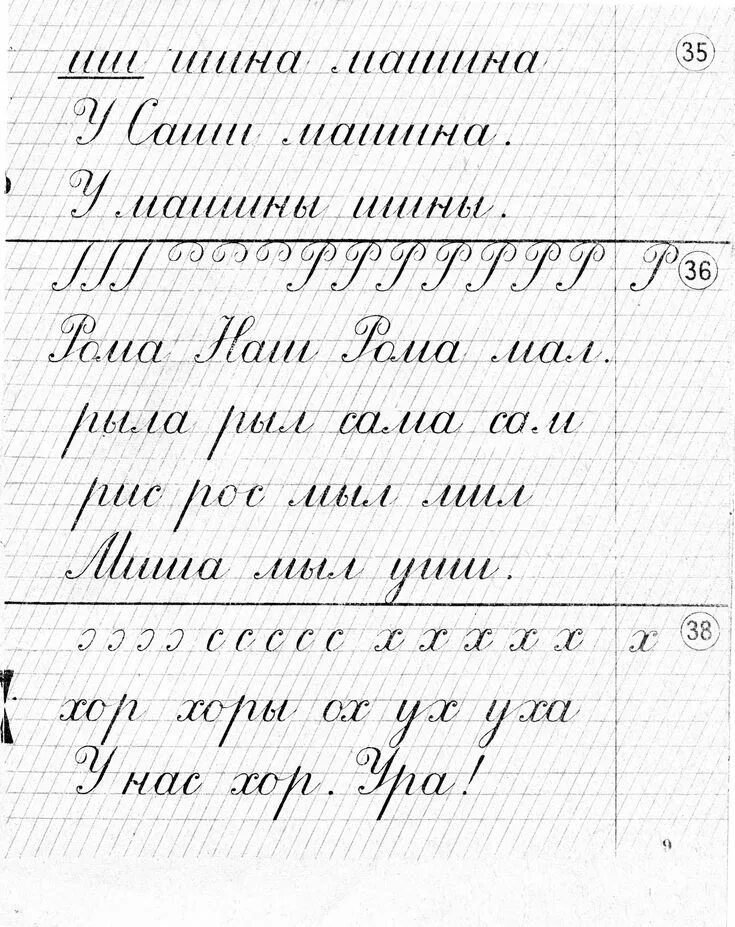 ши шина машина 35
У Саши машина.
У машины шины.
Р Р Р Р Р Р Р Р 36
Рома Наш Рома мал.
рыла рыл сама сам
рис рос мыл мил
Миша мыл уши.
ɔ ɔ ɔ ɔ с с с с с х х х х х х 38
хор хоры ох ух уха
У нас хор. Ура!
9